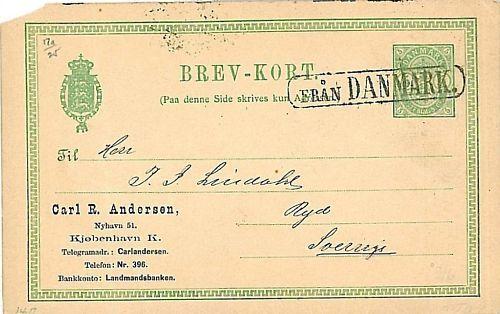 BREV-KORT.
(Paa denne Side skrives kun
FRÅN DANMARK.
DANMARK
Til Herr
T. F. Lindahl
Ryd
Sverrig
Carl R. Andersen,
Nyhavn 51.
Kjøbenhavn K.
Telegramadr.: Carlandersen.
Telefon: Nr. 396.
Bankkonto: Landmandsbanken.